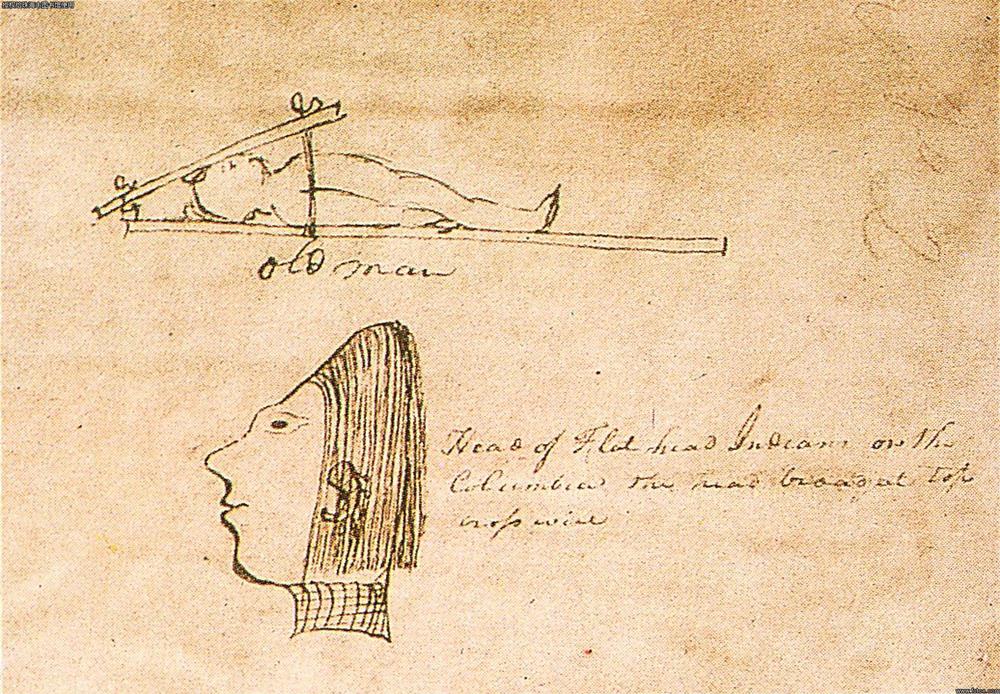 old man
Head of Flat head Indians on the
Columbia the head broad at top
cross wise
www.fotoe.com